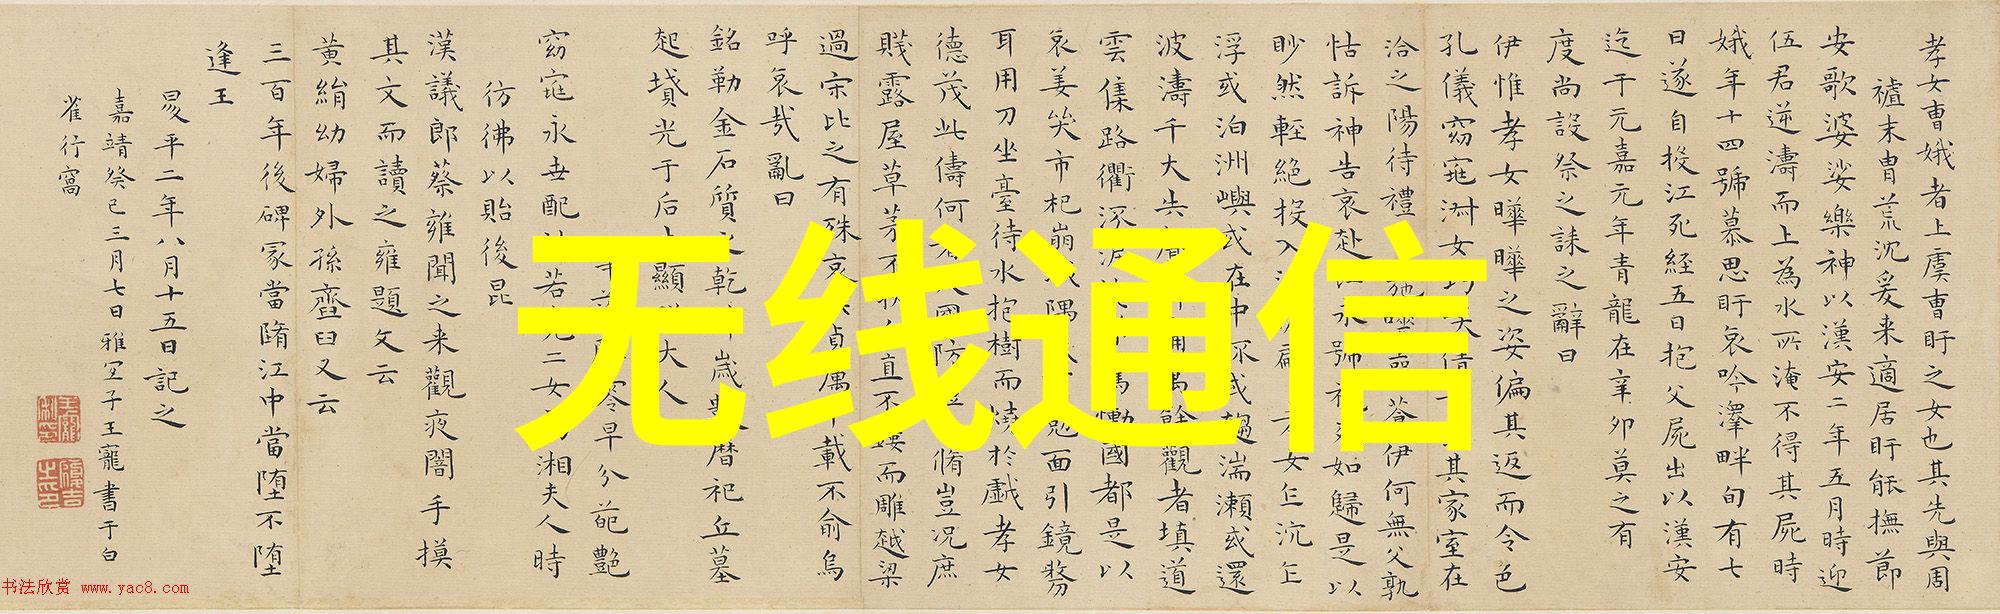 孝女曹娥者上虞曹盱之女也其先與周
禃末胄荒沈爰来適居盱能撫節
安歌婆娑樂神以漢安二年五月時迎
伍君逆濤而上為水所淹不得其屍時
娥年十四號慕思盱哀吟澤畔旬有七
日遂自投江死经五日抱父屍出以漢安
迄于元嘉元年青龍在辛卯莫之有
度尚設祭之誄之辭曰
伊惟孝女曄曄之姿偏其返而令色
孔儀窈窕淑女巧笑倩其家室在
洽之陽待禮蒼伊何無父孰
怙訴神告哀赴江永號視死如歸是以
眇然輕絕投入沙泥翩孝女乍沉乍
浮或泊洲嶼或在中流或趨湍瀬或還
波濤千夫失聲悼痛萬餘觀者填道
雲集路衢流淚掩涕驚慟國都是以
哀姜哭市杞崩城隅或有勉面引鏡剺
耳用刀坐臺待水抱樹而燒於戲孝女
德茂此儔何者大國防禮自脩豈況庶
賤露屋草茅不扶自直不鏤而雕越梁
過宋比之有殊哀此貞厲千載不渝烏
呼哀哉亂曰
銘勒金石質之乾坤歲數暦祀丘墓
起墳光于后土顯照夫人
早分葩艷
窈窕永世配神若堯二女為湘夫人時
彷彿以貽後昆
漢議郎蔡雍聞之来觀夜闇手摸
其文而讀之雍題文云
黄絹幼婦外孫齏臼又云
三百年後碑冢當隋江中當堕不堕
逢王
昇平二年八月十五日記之
嘉靖癸巳三月七日雅宜子王寵書于白
雀行窩
无线通信
书法欣赏 www.yac8.com